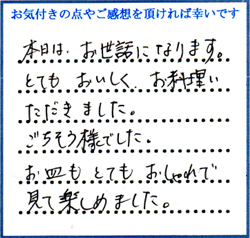 お気付きの点やご感想を頂ければ幸いです
本日は、お世話になります。
とても おいしく、お料理い
ただきました。
ごちそう様でした。
お皿も、とても、おしゃれで
見て楽しめました。